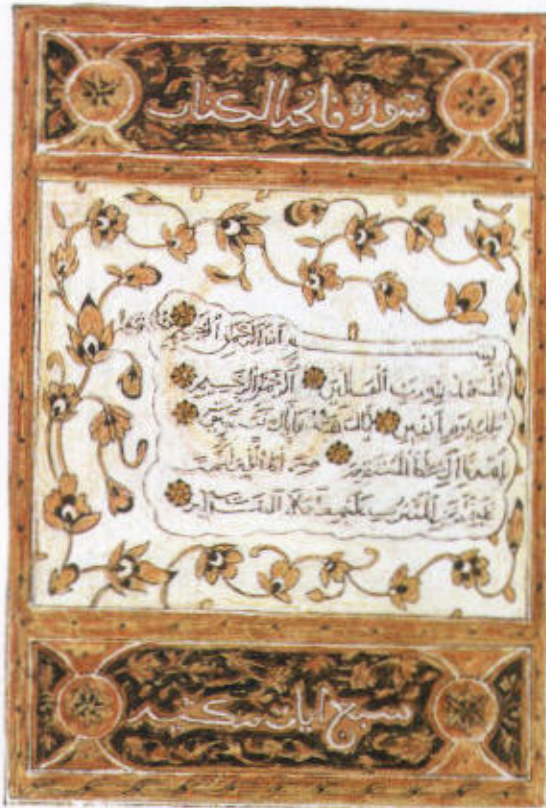 سورة فاتحة الكتاب
بسم الله الرحمن الرحيم
الحمد لله رب العالمين الرحمن الرحيم
ملك يوم الدين إياك نعبد وإياك نستعين
اهدنا الصراط المستقيم صراط الذين أنعمت
المغضوب عليهم ولا الضالين
سبع آيات مكية